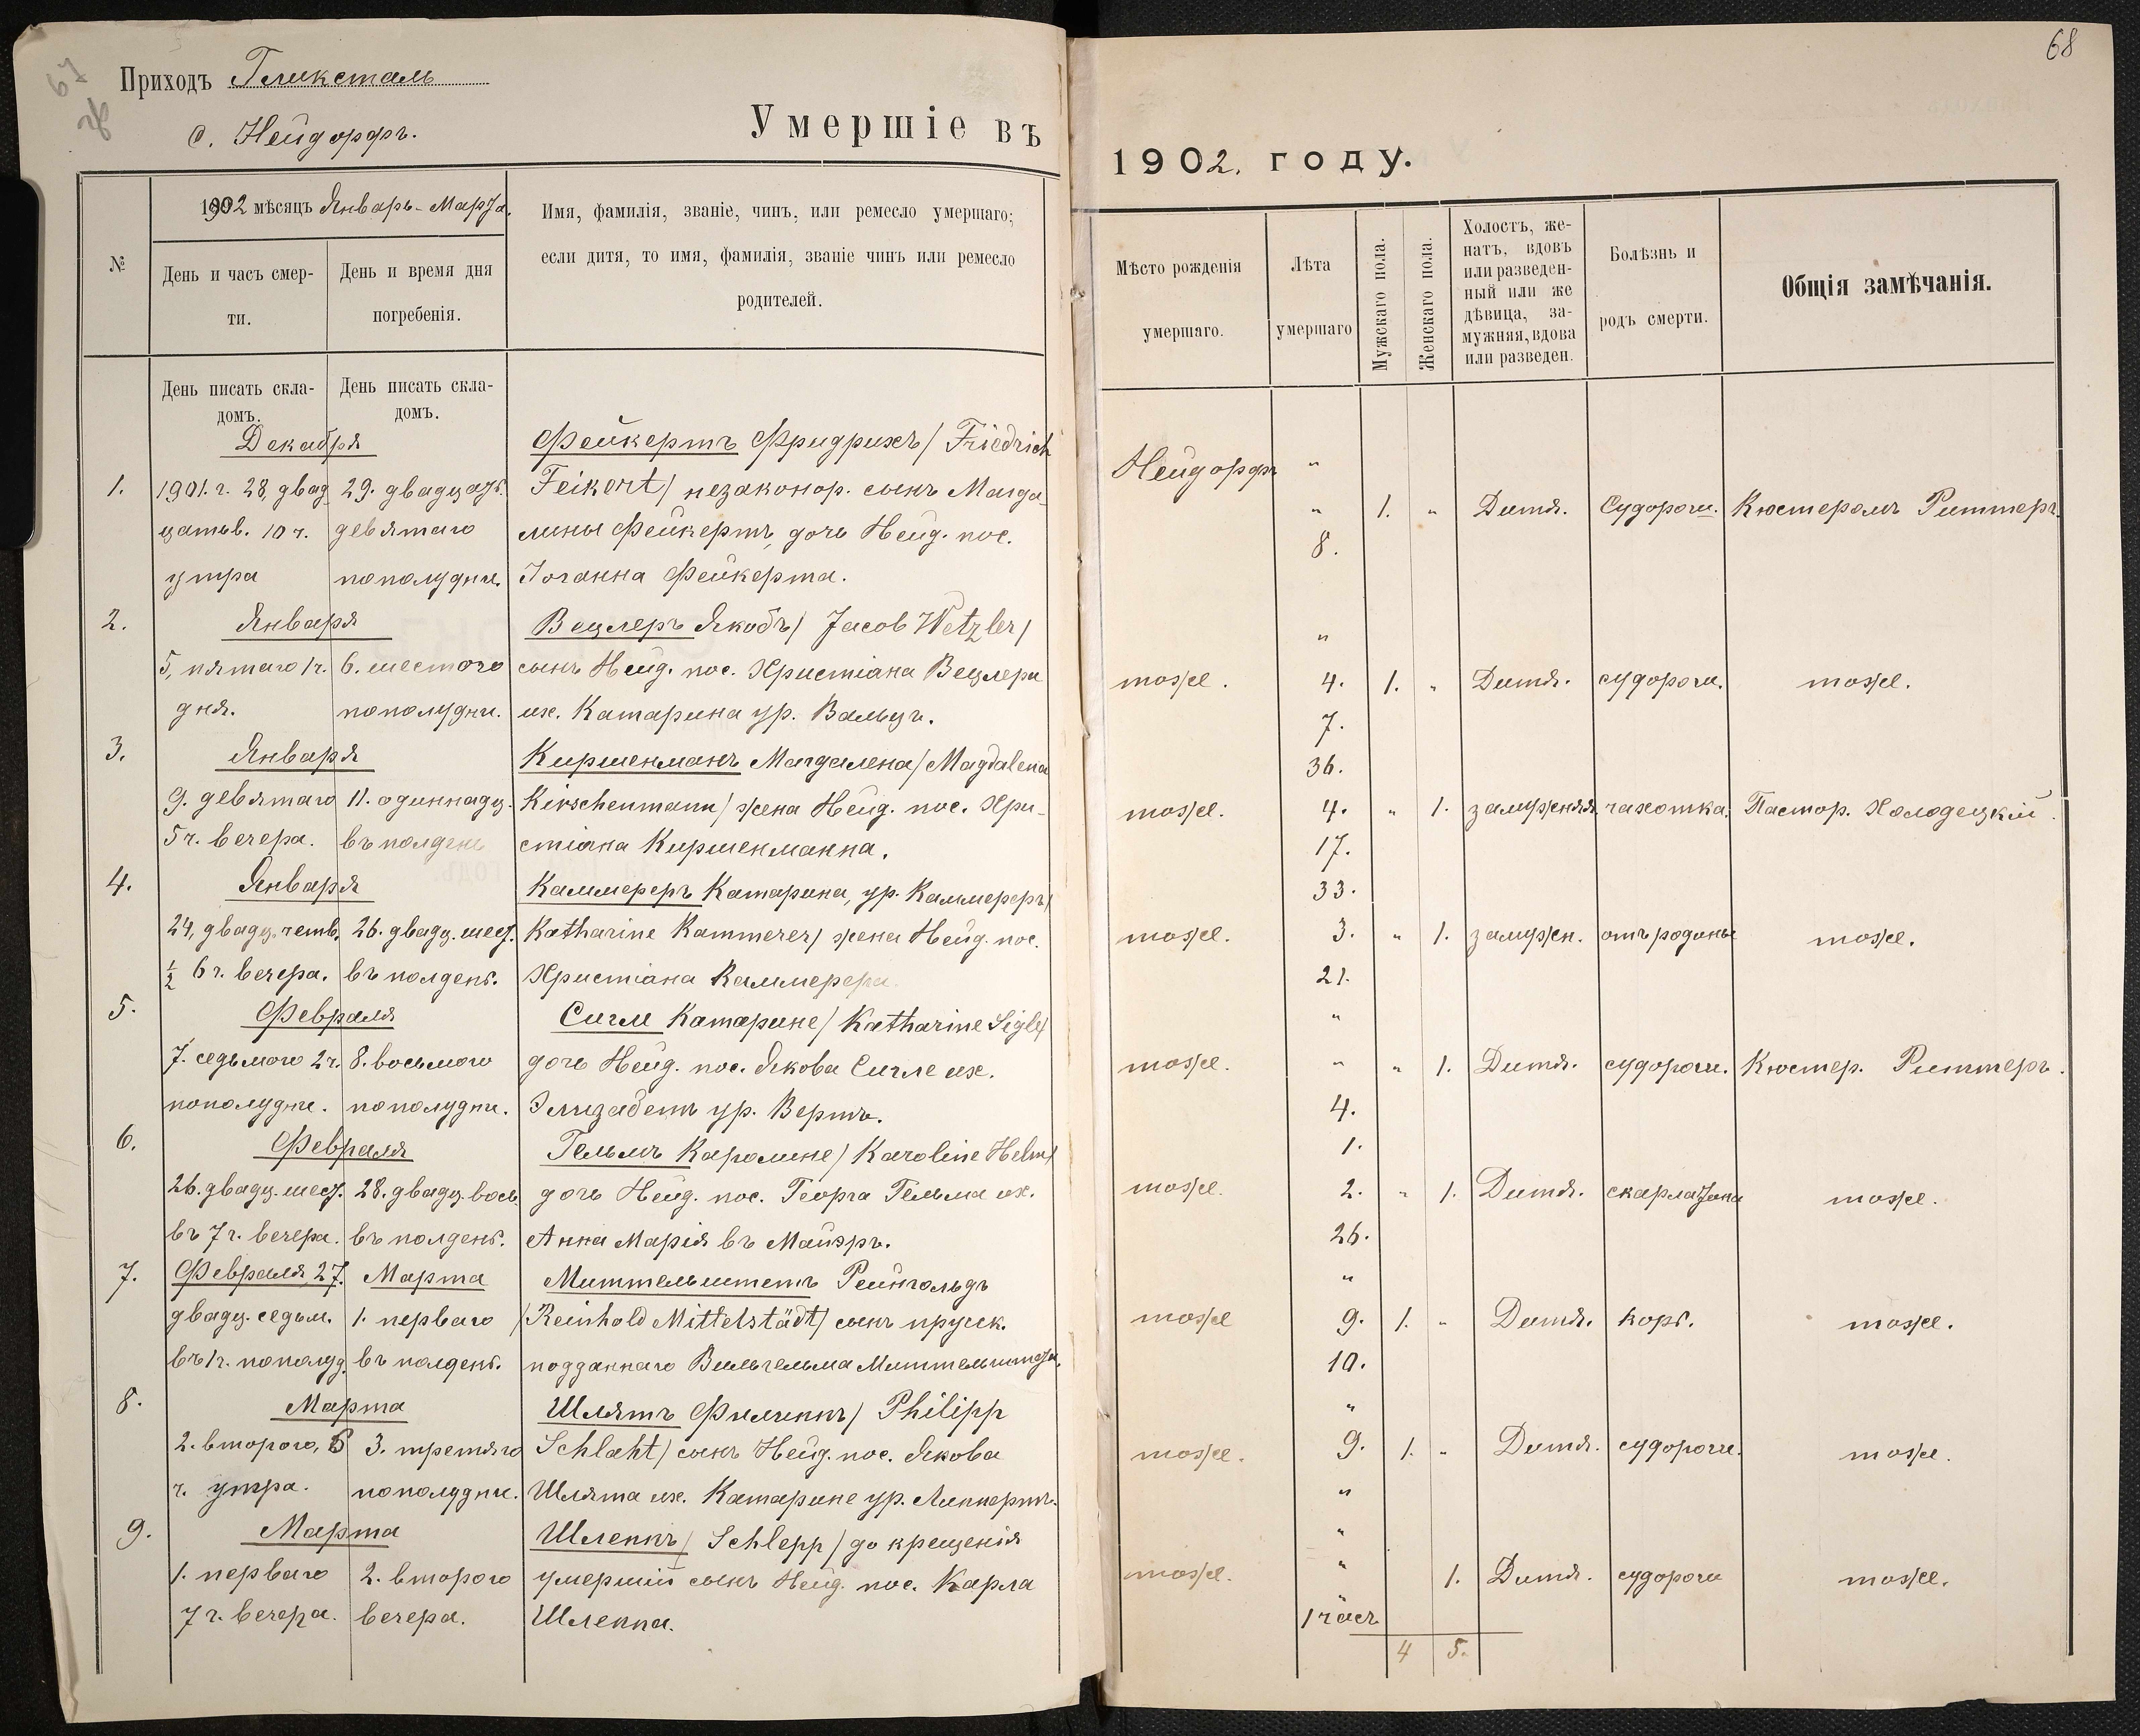 67
Приходъ Гликсталь
с. Нейдорфъ.
Умершіе въ
№
1902 мѣсяцъ Январь-Марта.
День и часъ смерти.
День и время дня погребенія.
Имя, фамилія, званіе, чинъ, или ремесло умершаго;
если дитя, то имя, фамилія, званіе чинъ или ремесло
родителей.
День писать складомъ.
День писать складомъ.
Декабря
Фейкертъ Фридрихъ / Friedrich
1. 1901. г. 28, двад- 29. двадцать Feikert / незаконор. сынъ Магда-
цатьв. 10 ч. девятаго лины Фейкертъ, дочь Нейд. пос.
утра пополудни. Іоганна Фейкерта.
2. Января Вецлеръ Якобъ / Jacob Wetzler /
5, пятаго 1 ч. 6. шестого сынъ Нейд. пос. Христіана Вецлера
дня. пополудни. их. Катарина ур. Вальцъ.
3. Января Киршенманъ Магдалена / Magdalena
9. девятаго 11. одиннадц. Kirschenmann / жена Нейд. пос. Хри-
5 ч. вечера. въ полдень стіана Киршенманна.
4. Января Каммереръ Катарина, ур. Каммереръ /
24, двадц. четв. 26. двадц. шест. Katharine Kammerer / жена Нейд. пос.
½ 6 ч. вечера. въ полдень. Христіана Каммерера.
5. Февраля Сигле Катарине / Katharine Sigle /
7. седьмого 2 ч. 8. восьмого дочь Нейд. пос. Якова Сигле их.
пополудни. пополудни. Элизабетъ ур. Вертъ.
6. Февраля Гельмъ Каролине / Karoline Helm /
26. двадц. шест. 28. двадц. вось. дочь Нейд. пос. Георга Гельма их.
въ 7 ч. вечера. въ полдень. Анна Марія въ Майэръ.
7. Февраля 27. Марта Миттельштетъ Рейнгольдъ
двадц. седьм. 1. перваго / Reinhold Mittelstädt / сынъ прусск.
въ 1 ч. пополуд. въ полдень. подданнаго Вильгельма Миттельштета.
8. Марта Шлятъ Филиппъ / Philipp
2. второго, 6 3. третяго Schlaht / сынъ Нейд. пос. Якова
ч. утра. пополудни. Шлята их. Катарине ур. Липпертъ.
9. Марта Шлеппъ / Schlepp / до крещенія
1. перваго 2. второго умершій сынъ Нейд. пос. Карла
7 ч. вечера. вечера. Шлеппа.
68
1902. году.
Мѣсто рожденія
умершаго.
Лѣта
умершаго
Мужскаго пола.
Женскаго пола.
Холостъ, же-
натъ, вдовъ
или разведен-
ный или же
дѣвица, за-
мужняя, вдова
или разведен.
Болѣзнь и
родъ смерти.
Общія замѣчанія.
Нейдорфъ "
" 1. " Дитя. Судороги. Кюстеромъ Риттеръ.
8.
"
тоже. 4. 1. " Дитя. судороги. тоже.
7.
36.
тоже. 4. " 1. замужняя. чахотка. Пастор. Холодецкій.
17.
33.
тоже. 3. " 1. замужн. отъ родовъ тоже.
21.
"
тоже. " " 1. Дитя. судороги. Кюстер. Риттеръ.
4.
1.
тоже. 2. " 1. Дитя. скарлатина тоже.
26.
"
тоже 9. 1. " Дитя. корь. тоже.
10.
"
тоже. 9. 1. " Дитя. судороги. тоже.
"
"
тоже. " 1. Дитя. судороги тоже.
1 часъ
4 5.